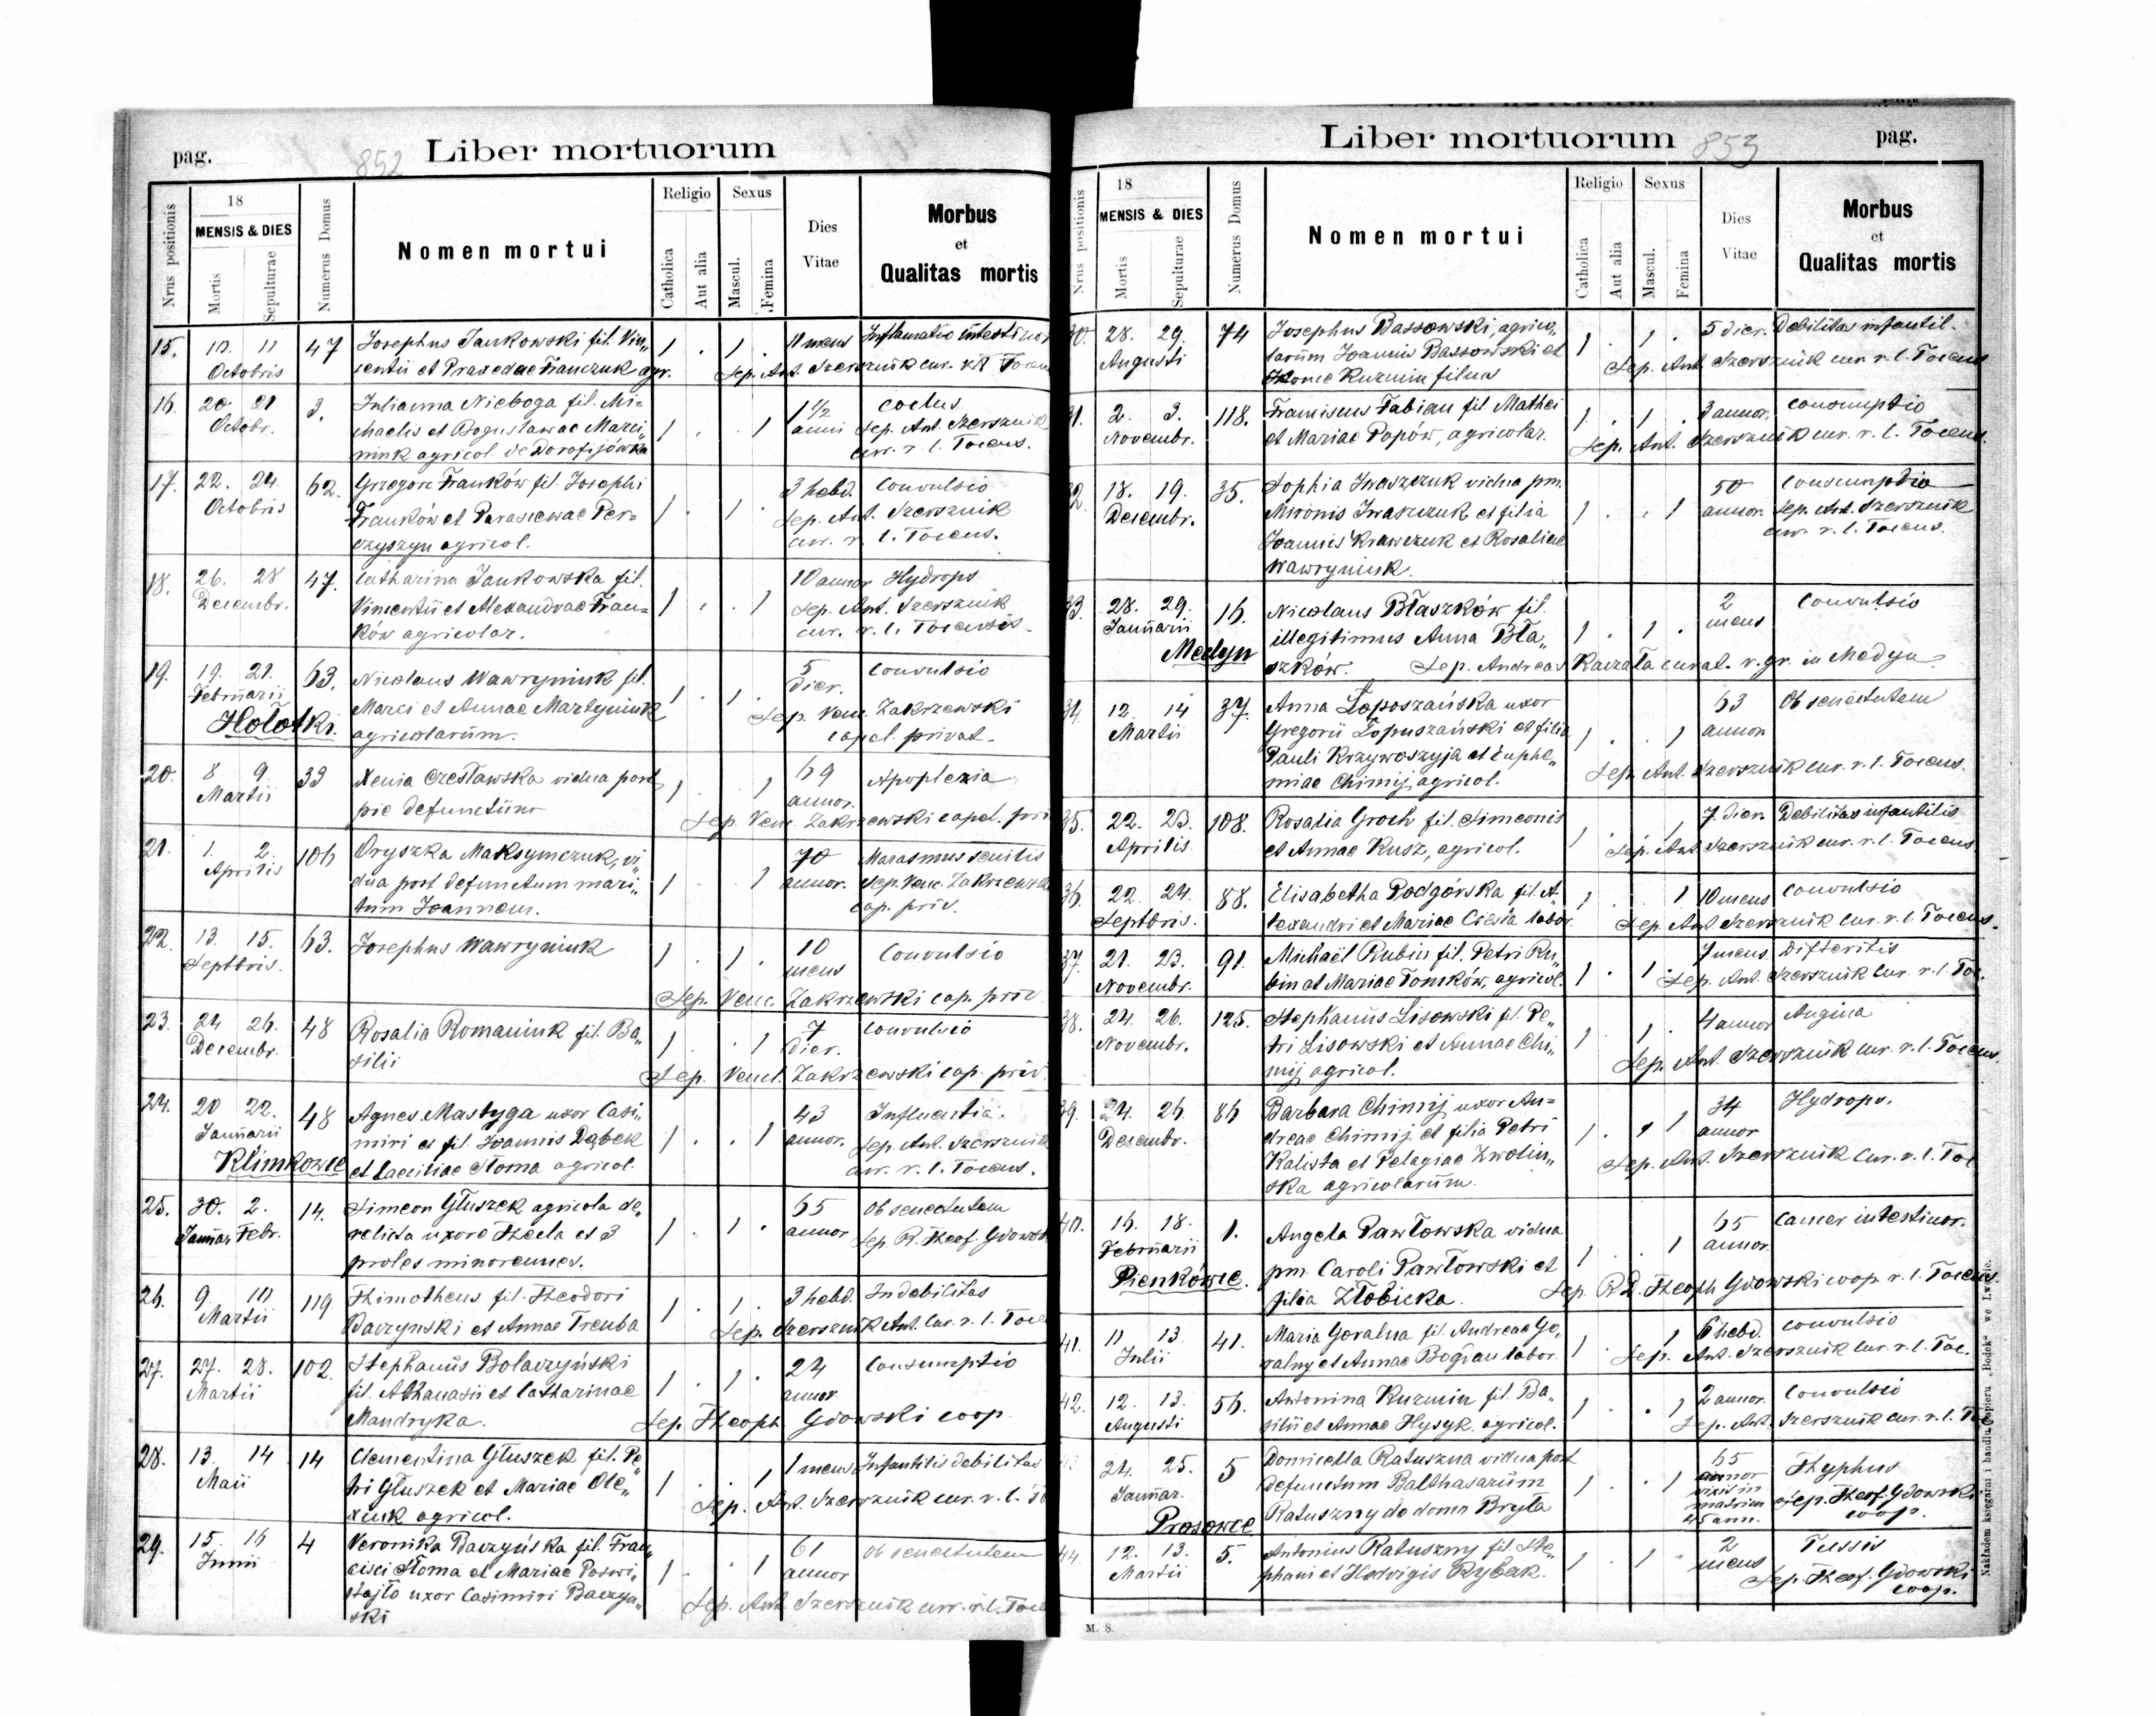 pag.
852
Liber mortuorum
Nrus positionis
18
MENSIS & DIES
Mortis
Sepulturae
Numerus Domus
Nomen mortui
Religio
Catholica
Aut alia
Sexus
Mascul.
Femina
Dies
Vitae
Morbus
et
Qualitas mortis
15. 10. 11 Octobris 47 Josephus Jankowski fil. Vin„ 1 . 1 . 11 mens Inflamatio intestinor
centii et Praxedae Franczuk agr. Sep. Ant. Szersznik cur. r. l. Tocen
16. 20 21 Octobr. 3. Julianna Nieboga fil. Mi= 1½ coctus
chaelis et Bogusławae Marci„ 1 . . 1 anni Sep. Ant. Szersznik
niuk agricol. de Dorofijówka cur. r. l. Tocens.
17. 22. 24. Octobris 62. Grzegorz Franków fil. Josephi 3 hebd. Convulsio
Franków et Parascewae Per= 1 . 1 . Sep. Ant. Szersznik
czyszyn agricol. cur. r. l. Tocens.
18. 26. 28 Decembr. 47. Catharina Jankowska fil. 10 annor Hydrops
Vincentii et Alexandrae Fran= 1 . . 1 Sep. Ant. Szersznik
ków agricolar. cur. r. l. Tocensis.
19. 19. 21. Februarii 63. Nicolaus Wawryniuk fil. 5 dier. Convulsio
Marci et Annae Martyniuk 1 . 1 . Sep. Venc. Zakrzewski
Hołotki. agricolarum. capel. privat.
20. 8 9. Martii 33 Xenia Czesławska vidua post 1 . . 1 69 annor. Apoplexia
pie defunctum Sep. Venc. Zakrzewski capel. pri
21. 1. 2. Aprilis 106 Oryszka Maksymczuk, vi„ 70 annor. Marasmus senilis
dua post defunctum mari„ 1 . . 1 Sep. Venc. Zakrzewski
tum Joannem. cap. priv.
22. 13. 15. Septbris. 63. Josephus Wawryniuk 1 . 1 . 10 mens Convulsio
Sep. Venc. Zakrzewski cap. priv.
23. 24 26. Decembr. 48 Rosalia Romaniuk fil. Ba„ 1 . . 1 7 dier. Convulsio
silii Sep. Vencl. Zakrzewski cap. priv.
24. 20 22. Januarii 48 Agnes Mastyga uxor Casi„ 43 annor. Influentia.
miri et fil. Joannis Dąbek 1 . . 1 Sep. Ant. Szersznik
Klimkowce et Caeciliae Słoma agricol. cur. r. l. Tocens.
25. 30. 2. Januar. Febr. 14. Simeon Głuszek agricola de„ 65 annor ob senectutem
relicta uxore Thecla et 3 1 . 1 . Sep. R. Theof. Gdowski
proles minorennes.
26. 9. 10 Martii 119. Thimotheus fil. Theodori 1 . 1 . 3 hebd. Indebilitas
Baczynski et Annae Trenba Sep. Szersznik Ant. cur. r. l. Toce
27. 27. 28. Martii 102. Stephanus Bolaczyński 24 annor Consumptio
fil. Athanasii et Catharinae 1 . 1 .
Mandryka. Sep. Theoph. Gdowski coop.
28. 13. 14 Maii 14 Clementina Głuszek fil. Pe„ 1 mens Infantilis debilitas
tri Głuszek et Mariae Ole„ 1 . . 1 Sep. Ant. Szersznik cur. r. l. To
xiuk agricol.
29. 15. 16 Junii 4 Veronika Baczyńska fil. Fran„ 61 annor ob senectutem
cisci Słoma et Mariae Posowi„ 1 . . 1
stajło uxor Casimiri Baczyn„ Sep. Ant. Szersznik curr. r. l. Toce
ski
Liber mortuorum
853
pag.
Nrus positionis
18
MENSIS & DIES
Mortis
Sepulturae
Numerus Domus
Nomen mortui
Religio
Catholica
Aut alia
Sexus
Mascul.
Femina
Dies
Vitae
Morbus
et
Qualitas mortis
30. 28. 29. Augusti 74 Josephus Bassowski, agrico„ 1 . 1 . 5 dier. Debilitas infantil.
larum Joannis Bassowski et Sep. Ant. Szersznik cur r. l. Tocens
Ilkonae Kuzmin filius
31. 2. 3. Novembr. 118. Franciscus Fabian fil. Mathei 1 . 1 . 3 annor. Consumptio
et Mariae Popów, agricolar. Sep. Ant. Szersznik cur. r. l. Tocens.
32. 18. 19. Decembr. 35. Sophia Iwaszczuk vidua pm. 50 annor. Consumptio
Mironis Iwaszczuk et filia 1 . . 1 Sep. Ant. Szersznik
Joannis Krawczuk et Rosaliae cur. r. l. Tocens.
Wawryniuk.
33. 28. 29. Januarii 16. Nicolaus Błaszków fil. 2 mens Convulsio
illegitimus Anna Bła„ 1 . 1 .
Medyn szków. Sep. Andreas Kaczała curat. r. gr. in Medyn.
34. 12. 14 Martii 37. Anna Łoposzańska uxor 63 annor Ob senectutem
Gregorii Łopuszański et filia 1 . . 1
Pauli Krzywoszyja et Euphe„ Sep. Ant. Szersznik cur. r. l. Tocens.
miae Chimij agricol.
35. 22. 23. Aprilis 108. Rosalia Groch fil. Simeonis 1 . . 1 7 dier. Debilitas infantilis
et Annae Kusz, agricol. Sep. Ant Szersznik cur. r. l. Tocens.
36. 22. 24. Septbris. 88. Elisabetha Podgórska fil. A„ 1 . . 1 10 mens Convulsio
lexandri et Mariae Cieśla labor. Sep. Ant Szersznik cur. r. l. Tocens.
37. 21. 23. Novembr. 91. Michaël Rubin fil. Petri Ru„ 1 . 1 . 7 mens Difteritis
bin et Mariae Tomków, agricol. Sep. Ant. Szersznik cur. r. l. Toc.
38. 24. 26. Novembr. 125. Stephanus Lisowski fil. Pe„ 4 annor Angina
tri Lisowski et Annae Chi„ 1 . 1 . Sep. Ant Szersznik cur. r. l. Tocens.
mij agricol.
39. 24. 26. Decembr. 86 Barbara Chimij uxor An= 34 annor Hydrops.
dreae Chimij et filia Petri 1 . . 1
Kalista et Pelagiae Zwolin„ Sep. Ant. Szersznik cur. r. l. Toc
ska agricolarum.
40. 16. 18. Februarii 1. Angela Pawłowska vidua 1 . . 1 65 annor. Cancer intestinor.
Pienkówce. pm. Caroli Pawłowski et
filia Złobicka. Sep. R. D. Theoph Gdowski coop. r. l. Tocens.
41. 11 13. Julii 41. Maria Goralna fil. Andreae Go„ 1 . . 1 6 hebd. Convulsio
ralny et Annae Bogdan labor. Sep. Ant. Szersznik cur. r. l. Toc.
42. 12. 13. Augusti 56. Antonina Kuzmin fil. Ba„ 1 . . 1 2 annor. Convulsio
silii et Annae Hysyk. agricol. Sep. Ant. Szersznik cur. r. l. Toc
43. 24. 25. Januar. 5 Domicella Ratuszna vidua post 65 annor Thyphus
defunctum Balthasarum 1 . . 1 vixit in matrim Sep. Theof. Gdowski
Prosowce Ratuszny de domo Bryła 45 ann. coop.
44. 12. 13. Martii 5. Antonius Ratuszny fil. Ste„ 1 . 1 . 2 mens Tussis
phani et Hedvigis Rybak. Sep. Theof. Gdowski
coop.
M. 8.
Nakładem księgarni i handlu papieru „Bodek" we Lwowie.